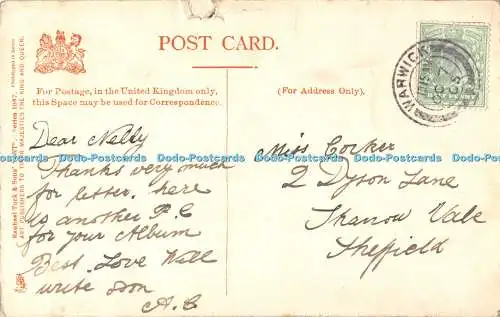 POST CARD.
For Postage, in the United Kingdom only,
this Space may be used for Correspondence.
(For Address Only).
WARWICK
OC 7
05
Raphael Tuck & Sons' "Series 1087."
ART PUBLISHERS TO THEIR MAJESTIES THE KING AND QUEEN.
Dear Nelly
Thanks very much
for letter. here
is another P.C
for your Album
Best Love Will
write soon
A.C
Miss Corker
2 Dyson Lane
Sharrow Vale
Sheffield
Dodo-Postcards Dodo-Postcards Dodo-Postcards Dodo-Postcards